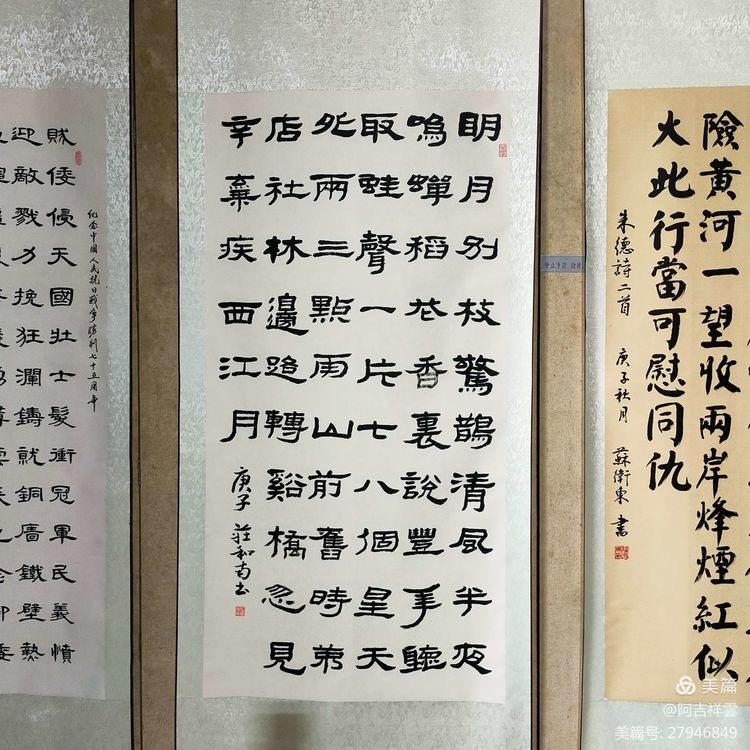 險黃河一望收兩岸烽煙紅似
火此行當可慰同仇
朱德詩二首 庚子秋月 蘇衛東書
明月別枝驚鵲清風半夜
鳴蟬稻花香裏說豐年聽
取蛙聲一片七八個星天
外兩三點雨山前舊時茅
店社林邊路轉谿橋忽見
辛棄疾西江月 庚子 莊和南書
紀念中國人民抗日戰爭勝利七十五周年
賊倭侵天國壯士髮衝冠軍民義憤
迎敵戮力挽狂瀾鑄就銅牆鐵壁熱
美篇
@阿吉祥雲
美篇号: 27946849